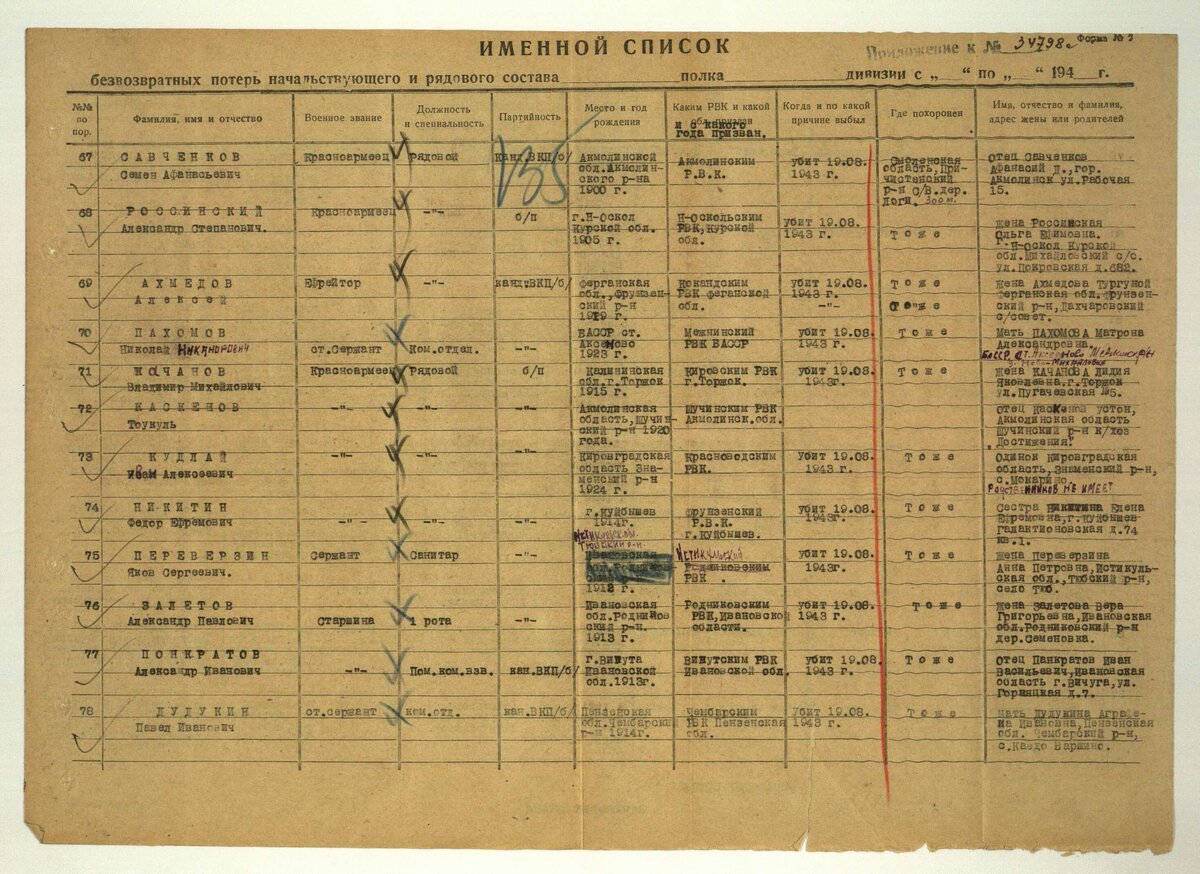 ИМЕННОЙ СПИСОК
Приложение к № 34798с Форма № 2
безвозвратных потерь начальствующего и рядового состава полка дивизии с „ “ по „ “ 194 г.
№№ по пор.
Фамилия, имя и отчество
Военное звание
Должность и специальность
Партийность
Место и год рождения
Каким РВК и какой обл. призван и с какого года призван.
Когда и по какой причине выбыл
Где похоронен
Имя, отчество и фамилия, адрес жены или родителей
135
67 САВЧЕНКОВ Красноармеец Рядовой канд.ВКП/б/ Акмолинской Акмолинским убит 19.08. Смоленская отец Савченков
Семен Афанасьевич обл.Акмолин- Р.В.К. 1943 г. область,При- Афанасий Д.,гор.
ского р-на чистенский Акмолинск ул.Рабочая
1900 г. р-н С/В.дер. 15.
логи. 300 м.
68 РОССИНСКИЙ Красноармеец -"- б/п г.Н-Оскол Н-Оскольским убит 19.08. жена Российская
Александр Степанович. Курской обл. РВК,Курской 1943 г. Тоже Ольга Ефимовна.
1905 г. обл. Н-Оскол Курской
обл.Михайловский с/с.
ул.Покровская д.682.
69 АХМЕДОВ Ефрейтор -"- канд.ВКП/б/ ферганская Кокандским убит 19.08. Тоже жена Ахмедова Тургуной
Алексей обл.,Фрунзен- РВК феганской 1943 г. ферганская обл.фрунзен-
ский р-н обл. -"- ский р-н,Дахчаровский
1919 г. с/совет.
70 ПАХОМОВ БАССР ст. Межнинский убит 19.08. Тоже Мать ПАХОМОВА Матрона
Николай Никанорович ст.Сержант Ком.отдел. -"- Аксеново РВК БАССР 1943 г. Александровна.
1923 г. БАССР, ст. Аксеново
71 КОЧАНОВ Красноармеец Рядовой б/п Калининская Кировским РВК убит 19.08. Тоже жена КАЧАНОВА Лидия
Владимир Михайлович обл.г.Торжок г.Торжок. 1943г. Яковлевна,г.Торжок
1915 г. ул.Пугачевская №5.
72 КАСКЕНОВ -"- -"- -"- Акмолинская Шучинским РВК отец Каскенов устон,
Тоукуль область,Шучин- Акмолинск.обл. Акмолинская область
ский р-н 1920 Шучинский р-н к/хоз
года. „Достижения".
73 КУДЛАЙ -"- -"- -"- Кировградская Красноводским убит 19.08. Тоже Одинок Кировградская
Иван Алексеевич область Зна- РВК. 1943 г. область,Знаменский р-н,
менский р-н с.Мокарино.
1924 г. Родственников не имеет
74 НИКИТИН г.Куйбышев фрунзенский убит 19.08. Тоже Сестра Никитина Елена
Федор Ефремович -"- -"- -"- 1914г. Р.В.К. 1943г. Ефремовна,г.Куйбышев
г.Куйбышев. Галактионовская д.74
кв.1.
75 ПЕРЕВЕРЗИН Сержант Санитар Ивановская Истикульский убит 19.08. Тоже жена Переверзина
Яков Сергеевич. Родниковским 1943г. Анна Петровна,Истикуль-
1912 г. РВК . ская обл.,Тюбский р-н,
село Тюб.
76 ЗАЛЕТОВ Ивановская Родниковским убит 19.08. Тоже жена Залетова Вера
Александр Павлович Старшина 1 рота -"- обл.Родников РВК,Ивановской 1943 г. Григорьевна,Ивановская
ский р-н. области. обл.Родниковский р-н
1913 г. дер.Семеновка.
77 ПОНКРАТОВ г.Вичуга Вичутским РВК убит 19.08. Тоже Отец Панкратов Иван
Александр Иванович -"- Пом.ком.взв. кан.ВКП/б/ Ивановской Ивановской обл. 1943 г. Васильевич,Ивановская
обл.1913г. область г.Вичуга,ул.
Горняцкая д.7.
78 ДУДУКИН ст.сержант ком.отд. кан.ВКП/б/ Пензенская Чембарским убит 19.08. Тоже мать Дудукина Аграфе-
Павел Иванович обл.Чембарский РВК Пензенская 1943 г. на Ивановна,Пензенская
р-н 1914г. обл. обл. Чембарский р-н,
с.Каздо Варшино.